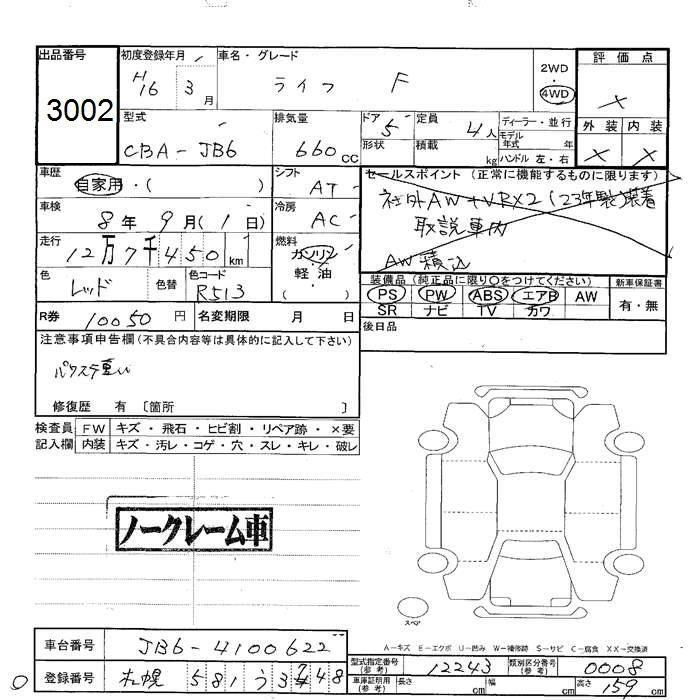 出品番号
3002
初度登録年月
H16 3月
車名・グレード
ライフ F
2WD
4WD
評価点
×
外装 内装
× ×
型式
CBA-JB6
排気量
660cc
ドア 5
形状
定員 4人
積載 kg
ディーラー・並行
モデル年式 年
ハンドル 左・右
車歴
自家用・( )
シフト
AT
セールスポイント (正常に機能するものに限ります)
社外AW+VRX2 (23年製)装着
取説車内
AW積込
車検
8年 9月 (1日)
冷房
AC
走行
12万7千450km
燃料
ガソリン
軽油
( )
色
レッド
色替
色コード
R513
装備品 (純正品に限り○をつけてください)
PS PW ABS エアB AW
SR ナビ TV カワ
新車保証書
有・無
R券 10050円
名変期限 月 日
後日品
注意事項申告欄(不具合内容等は具体的に記入して下さい)
パワステ重い
修復歴 有 〔箇所 〕
検査員 FW キズ・飛石・ヒビ割・リペア跡・×要
記入欄 内装 キズ・汚レ・コゲ・穴・スレ・キレ・破レ
ノークレーム車
スペア
A-キズ E-エクボ U-凹み W-補修跡 S-サビ C-腐食 XX-交換済
車台番号 JB6-4100622
型式指定番号(参考) 12243
類別区分番号(参考) 0008
登録番号 札幌 581
車庫証明用(参考) 長さ cm 幅 cm 高さ 159 cm